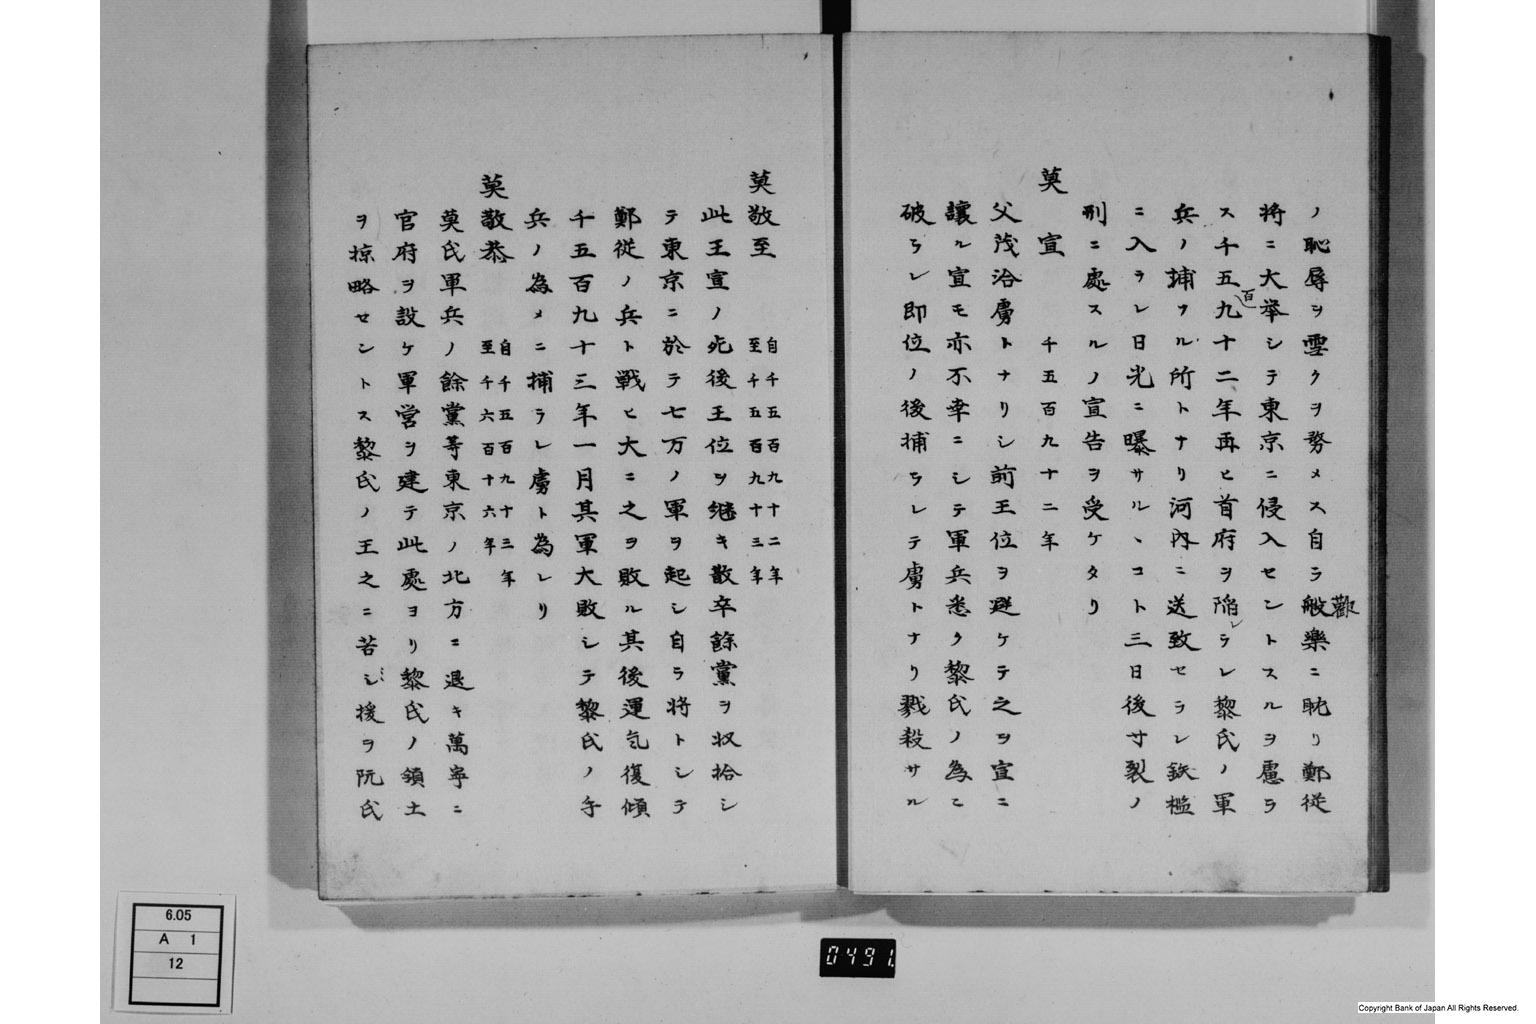 ノ恥辱ヲ雪クヲ務メス自ラ般樂ニ耽リ鄭従
歡
将ニ大挙シテ東京ニ侵入セントスルヲ慮ラ
ス千五九十二年再ヒ首府ヲ陥ラレ黎氏ノ軍
百
レ
兵ノ捕フル所トナリ河内ニ送致セラレ鉄檻
ニ入ラレ日光ニ曝サルヽコト三日後寸裂ノ
刑ニ處スルノ宣告ヲ受ケタリ
莫宣 千五百九十二年
父茂洽虜トナリシ前王位ヲ避ケテ之ヲ宣ニ
讓ル宣モ亦不幸ニシテ軍兵悉ク黎氏ノ為ニ
破ラレ即位ノ後捕ラレテ虜トナリ戮殺サル
莫敬至 自千五百九十二年
至千五百九十三年
此王宣ノ死後王位ヲ継キ散卒餘黨ヲ収拾シ
テ東京ニ於テ七万ノ軍ヲ起シ自ラ将トシテ
鄭従ノ兵ト戦ヒ大ニ之ヲ敗ル其後運気復傾
千五百九十三年一月其軍大敗シテ黎氏ノ手
兵ノ為メニ捕ラレ虜ト為レリ
莫敬恭 自千五百九十三年
至千六百十六年
莫氏軍兵ノ餘黨等東京ノ北方ニ退キ萬寧ニ
官府ヲ設ケ軍営ヲ建テ此處ヨリ黎氏ノ領土
ヲ掠略セントス黎氏ノ王之ニ苦シミ援ヲ阮氏
6.05
A 1
12
0491.
Copyright Bank of Japan All Rights Reserved.